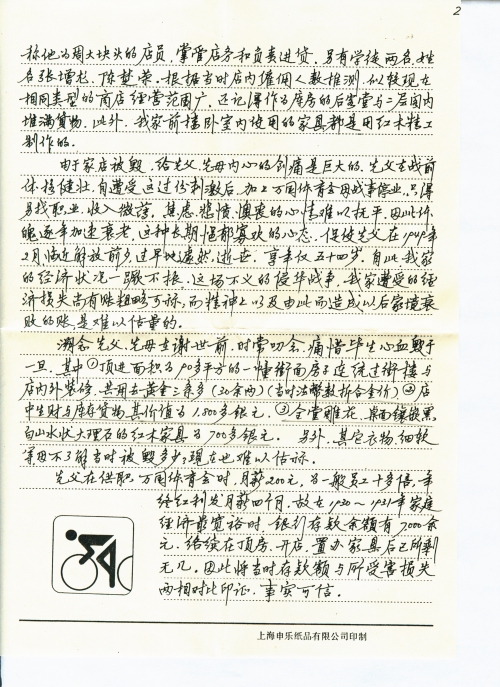 2
称他为周大块头的店员,掌管店务和负责进货,另有学徒两名,姓
名张增尧、陈楚荣。根据当时店内雇佣人数推测,似较现在
相同类型的商店经营范围广,还记得作为库房的后客堂与二层阁内
堆满货物,此外,我家前楼卧室内使用的家具都是用红木精工
制作的。
由于家店被毁,给先父、先母内心的创痛是巨大的,先父在战前
体格健壮,自遭受这过份刺激后,加上万国体育会因战事停业,只得
另找职业,收入微薄,焦虑、悲愤、懊丧的心情难以抚平,因此体
魄逐年加速衰老,这种长期恒郁寡欢的心态,促使先父在1949年
2月临近解放前夕过早地凄然逝世,享年仅五十四岁,自此我家
的经济状况一蹶不振,这场不义的侵华战争,我家遭受的经
济损失尚有账粗略可标,而精神上以及由此而造成以后家境衰
败的账是难以估量的。
溯念先父、先母在谢世前,时常叨念,痛惜毕生心血毁于
一旦,其中①顶进面积为90多平方的一幢街面房子连绕过街楼与
店内外装修,共用去黄金三条多(30余两)(当时法币数折合金价)②店
中生财与库存货物其价值为1,800多银元,③全堂雕花、桌面镶嵌黑
白山水状大理石的红木家具为700多银元。另外,其它衣物、细软
等因不了解当时被毁多少,现在也难以估标。
先父在供职万国体育会时,月薪200元,为一般员工十多倍,年
终红利发月薪四个月,故在1920~1931年家庭
经济最宽裕时,银行存款余额有7,000余
元,陆续在顶房、开店、置办家具后已所剩
无几,因此将当时存款额与所受害损失
两相对比印证,事实可信。
上海申乐纸品有限公司印制